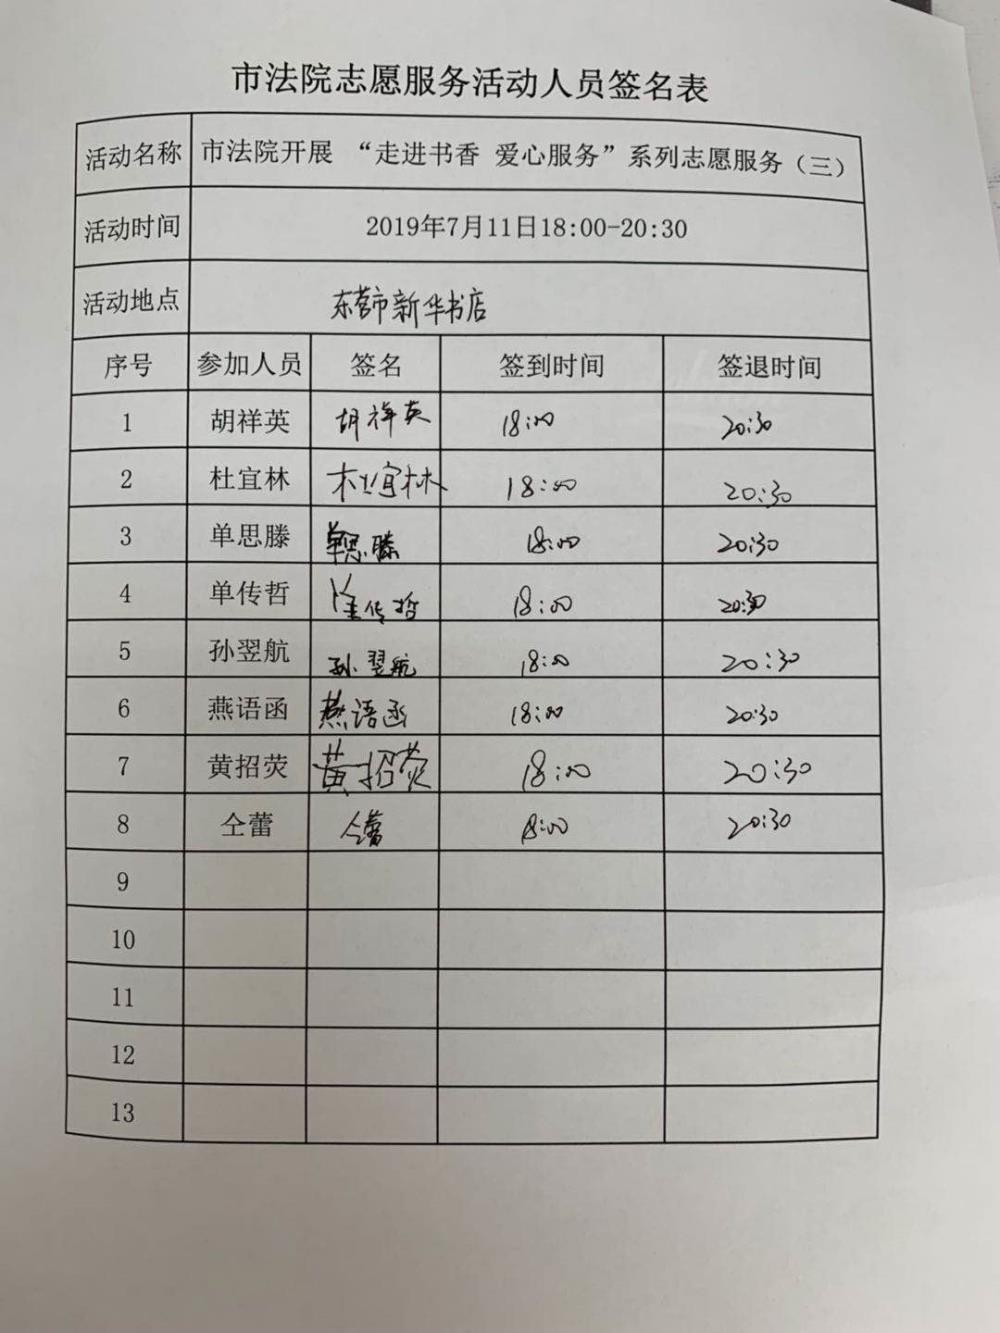 市法院志愿服务活动人员签名表
活动名称 市法院开展 “走进书香 爱心服务”系列志愿服务（三）
活动时间 2019年7月11日18:00-20:30
活动地点 东营市新华书店
序号 参加人员 签名 签到时间 签退时间
1 胡祥英 胡祥英 18:00 20:30
2 杜宜林 杜宜林 18:00 20:30
3 单思滕 单思滕 18:00 20:30
4 单传哲 单传哲 18:00 20:30
5 孙翌航 孙翌航 18:00 20:30
6 燕语函 燕语函 18:00 20:30
7 黄招荧 黄招荧 18:00 20:30
8 仝蕾 仝蕾 18:00 20:30
9
10
11
12
13